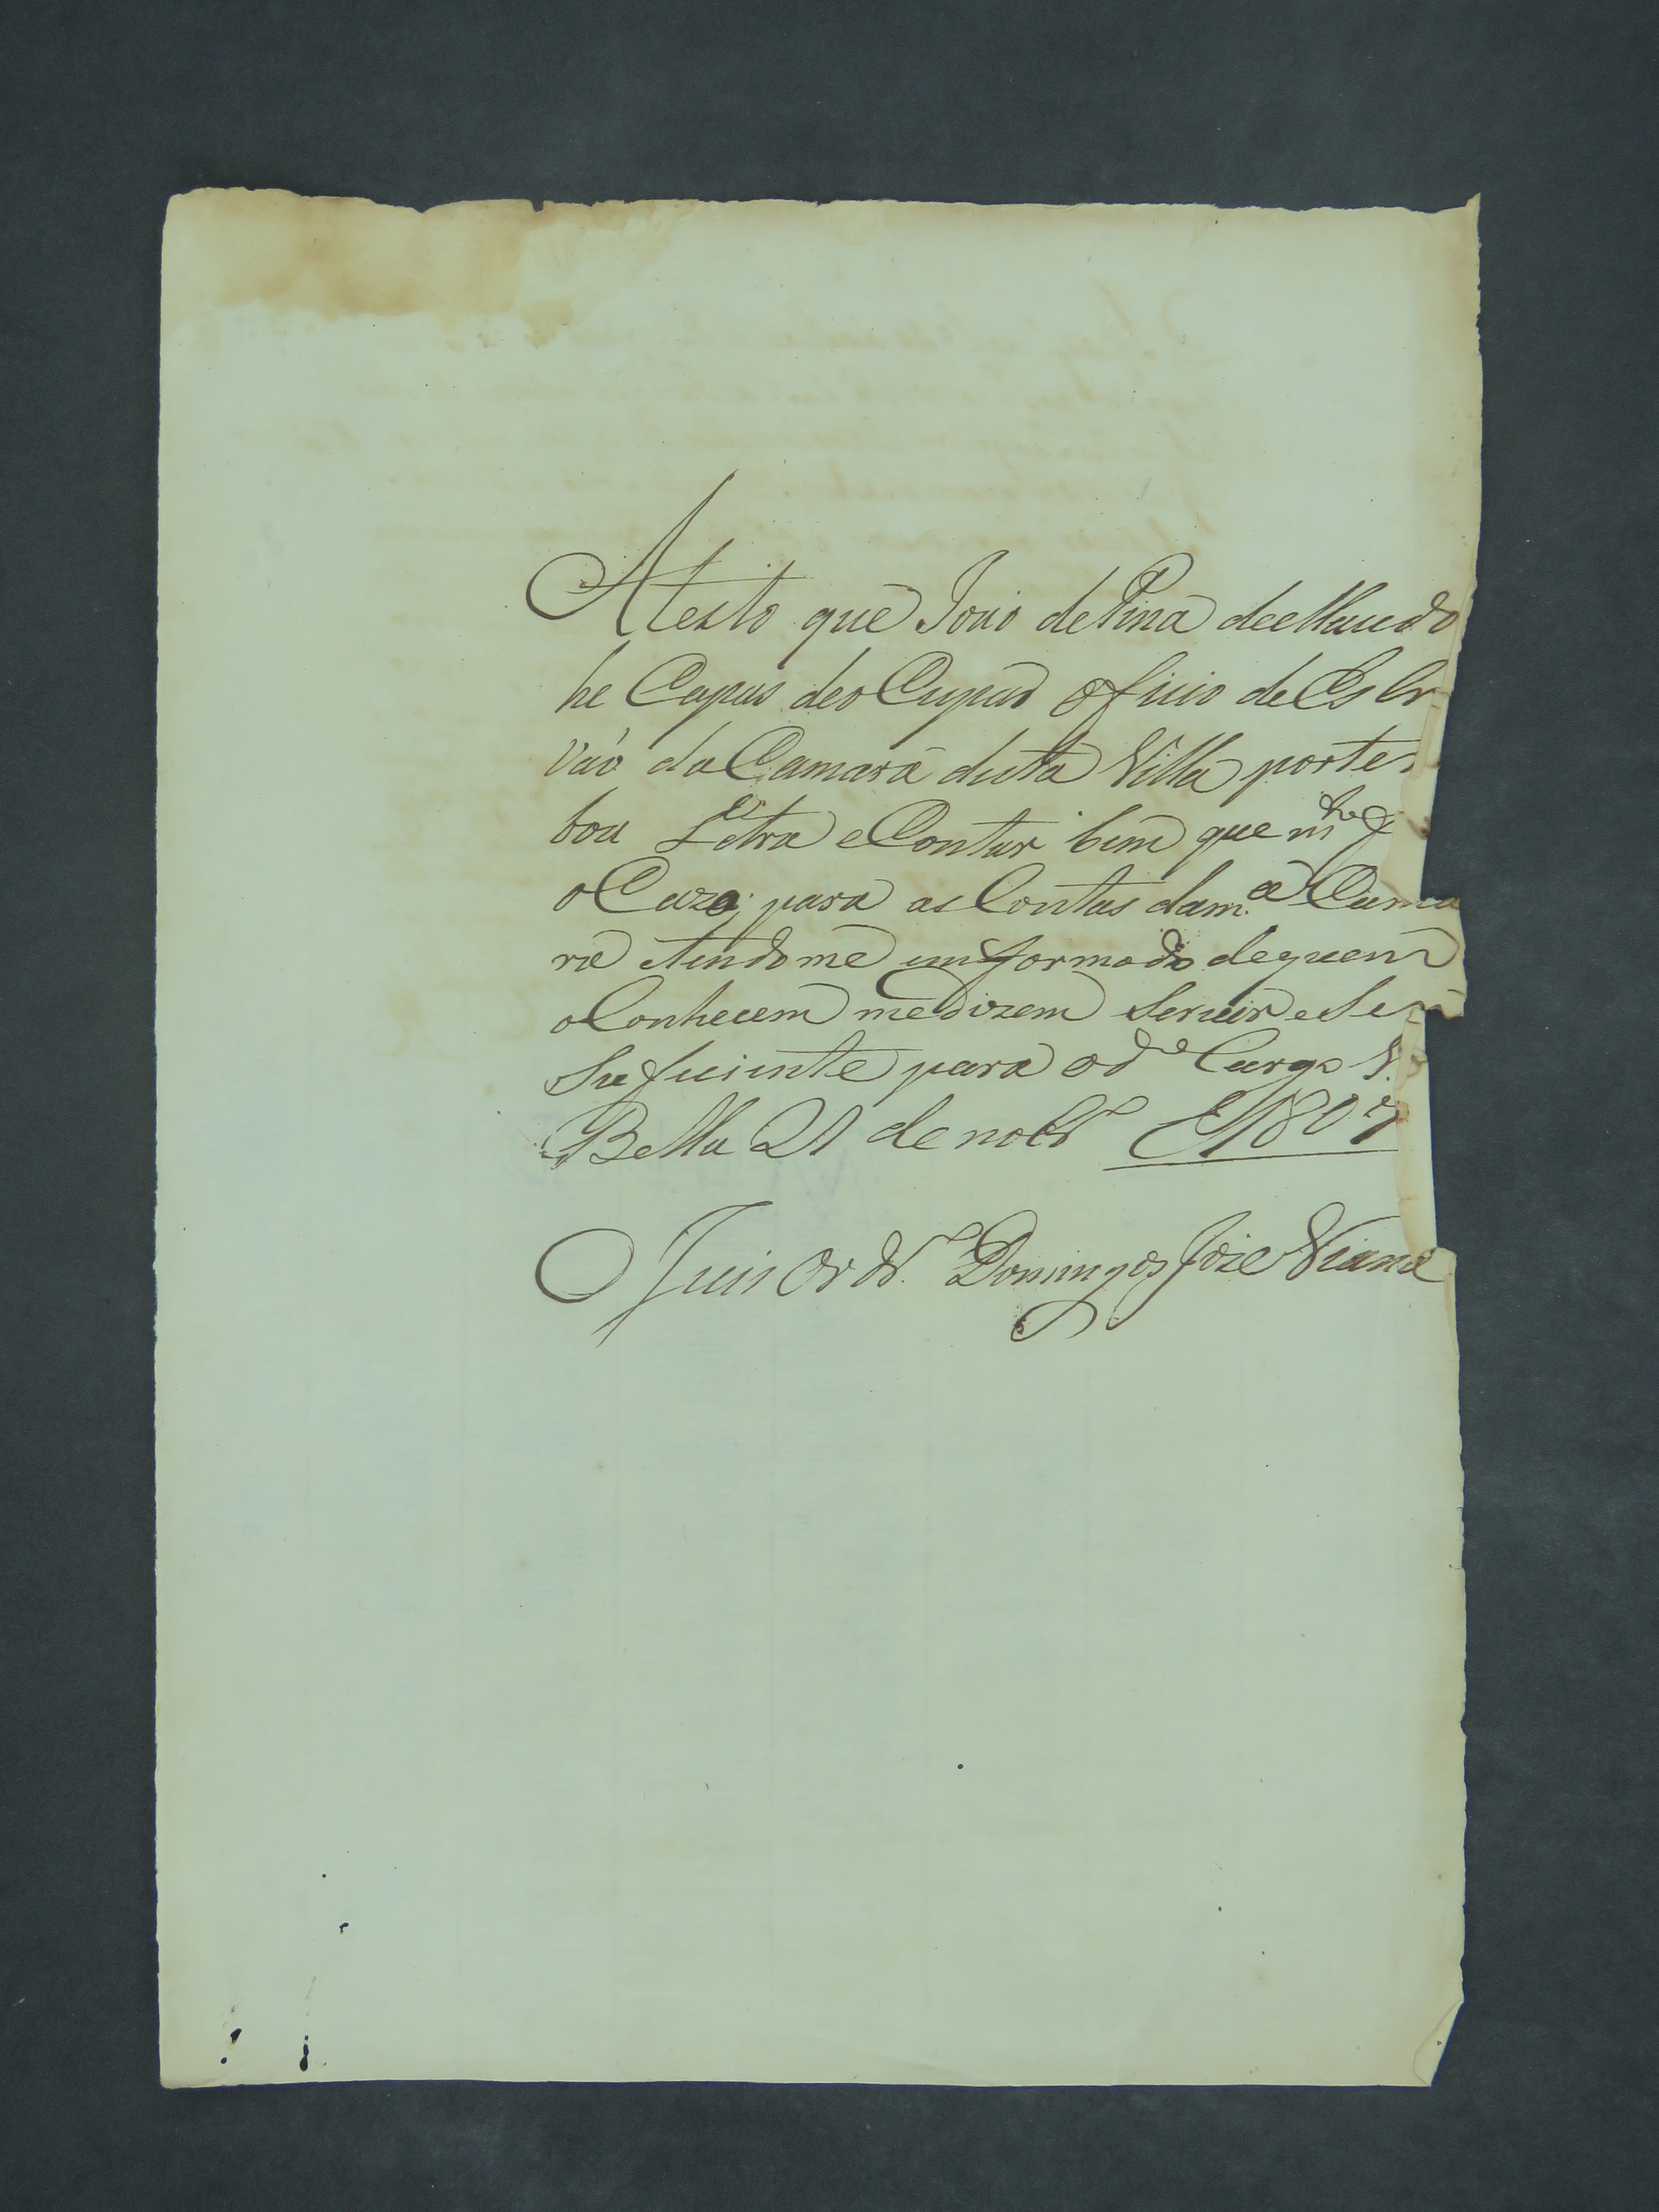 Atesto que Joaõ de Pina de Macedo
he Capas deo Cupar oficio de Es Cr
vaõ da Camara desta Villa porte
boa Letra e Contar bem que m.to f
o Cazo; para as Contas dam.a Cama
ra etendome imformado dequem
o Conhecem medizem Servir e Se
Suficiente para o d.o Cargo V.
Bella 21 de nobr.o E 1807
O Juis Ordr.o Domingos Joze Viana